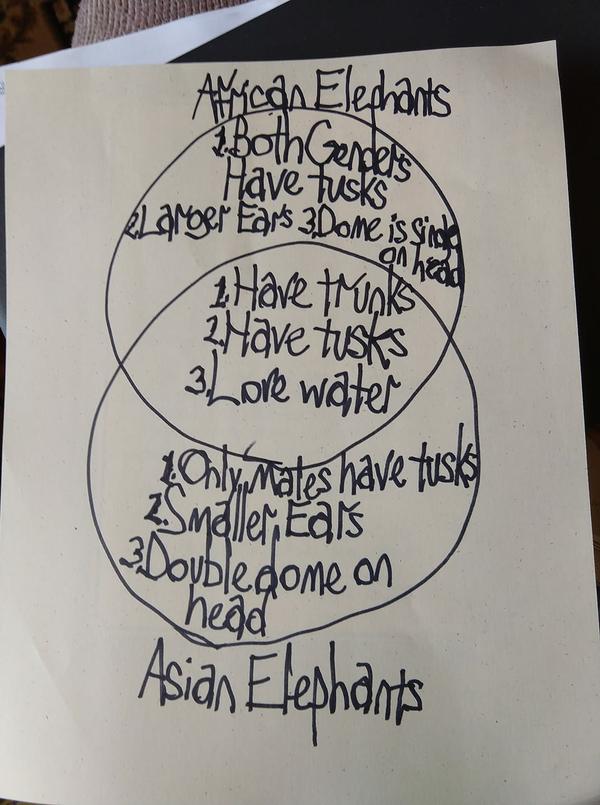 African Elephants
1. Both Genders
Have tusks
2. Larger Ears 3. Dome is single
on head
1. Have trunks
2. Have tusks
3. Love water
1. Only Mates have tusks
2. Smaller Ears
3. Double dome on
head
Asian Elephants